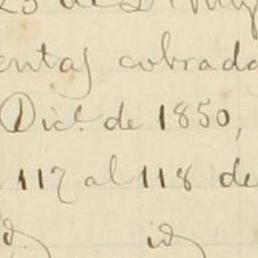 entas cobrada
Dicl. de 1850,
117 al 118 de
id. id